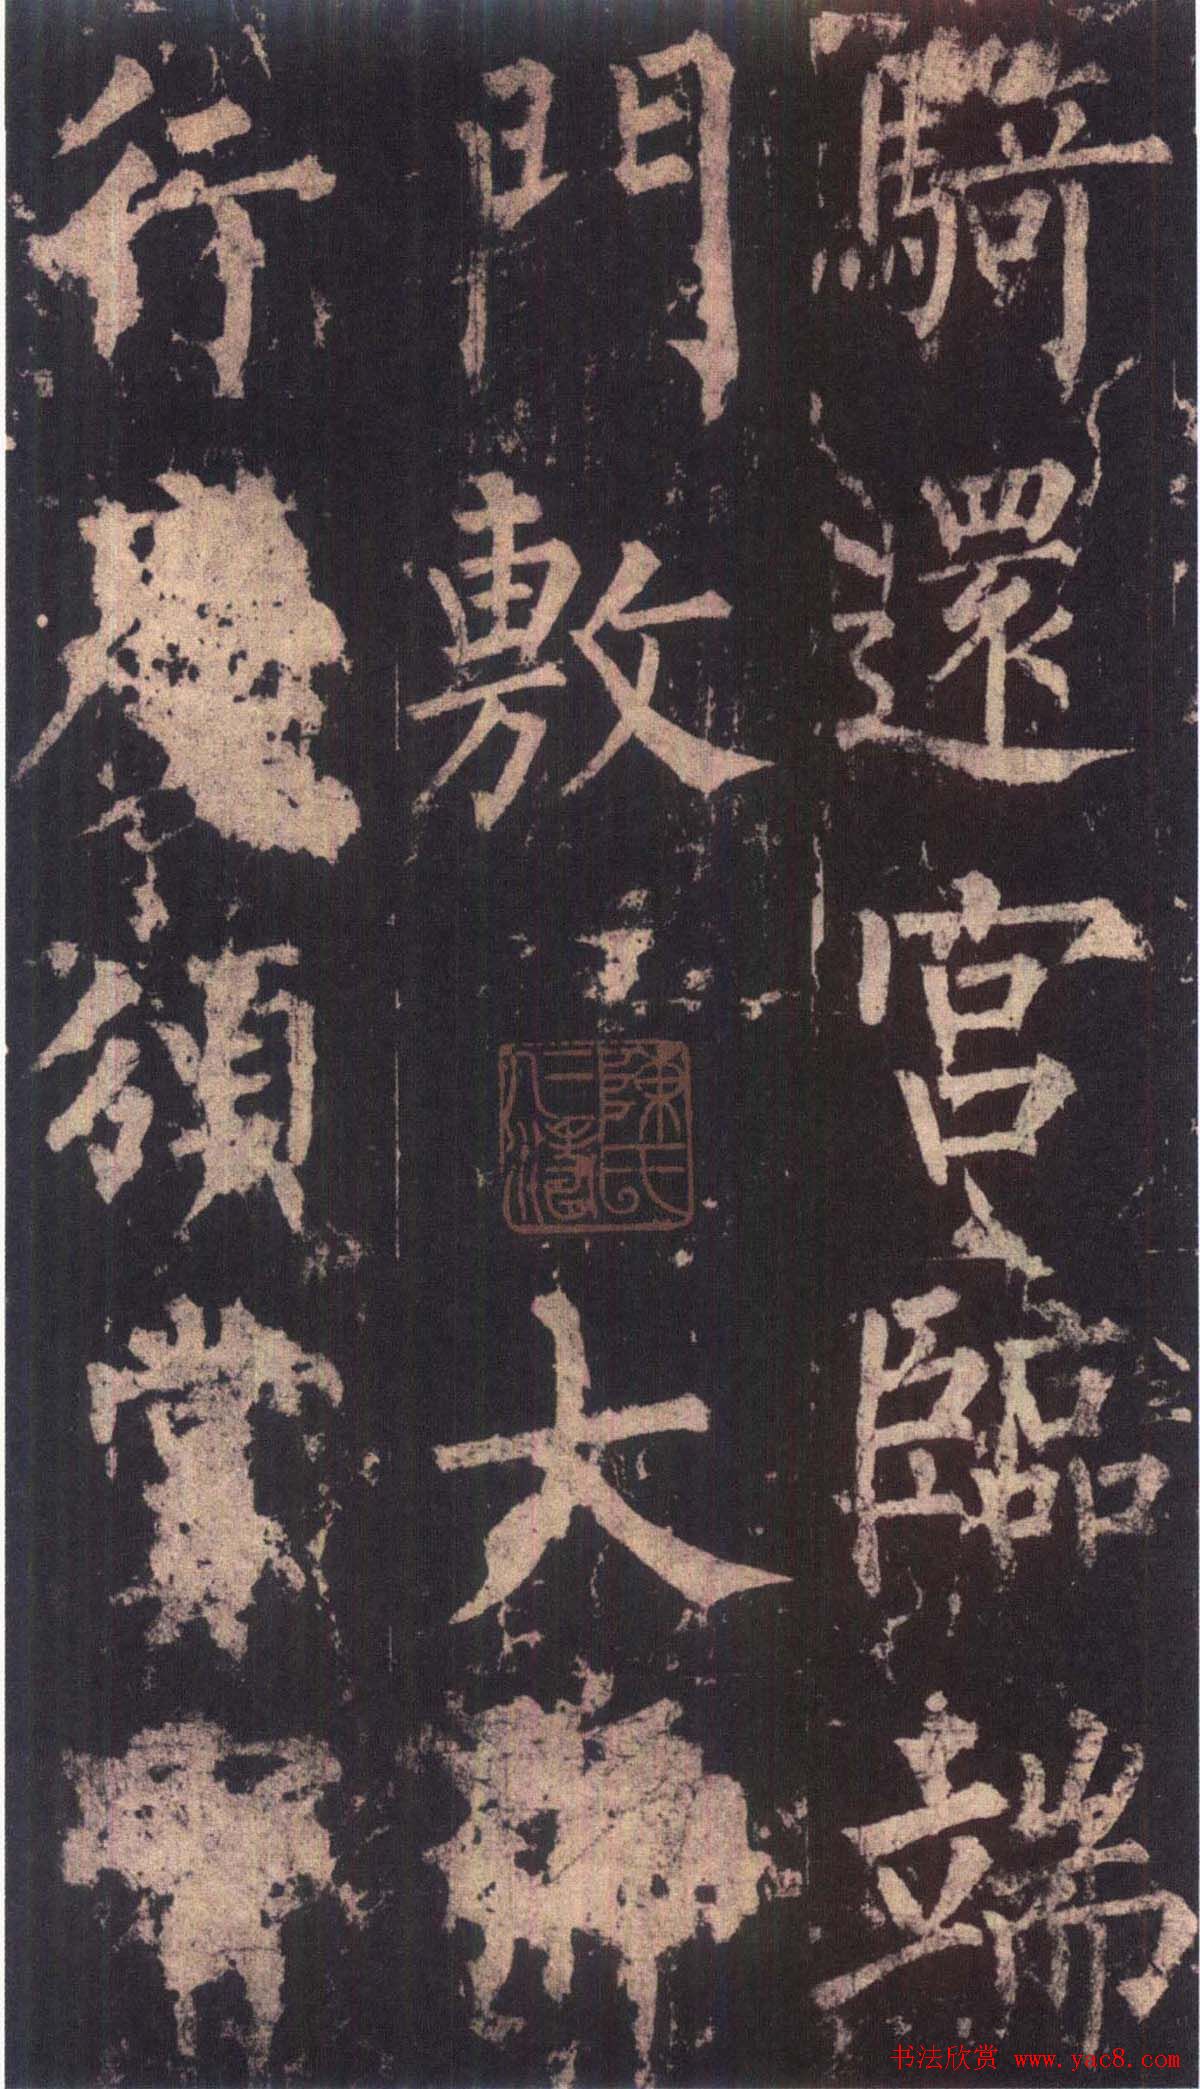 騎還宮臨端
門敷大
行慶頒賞
陳氏仁濤
书法欣赏 www.yac8.com